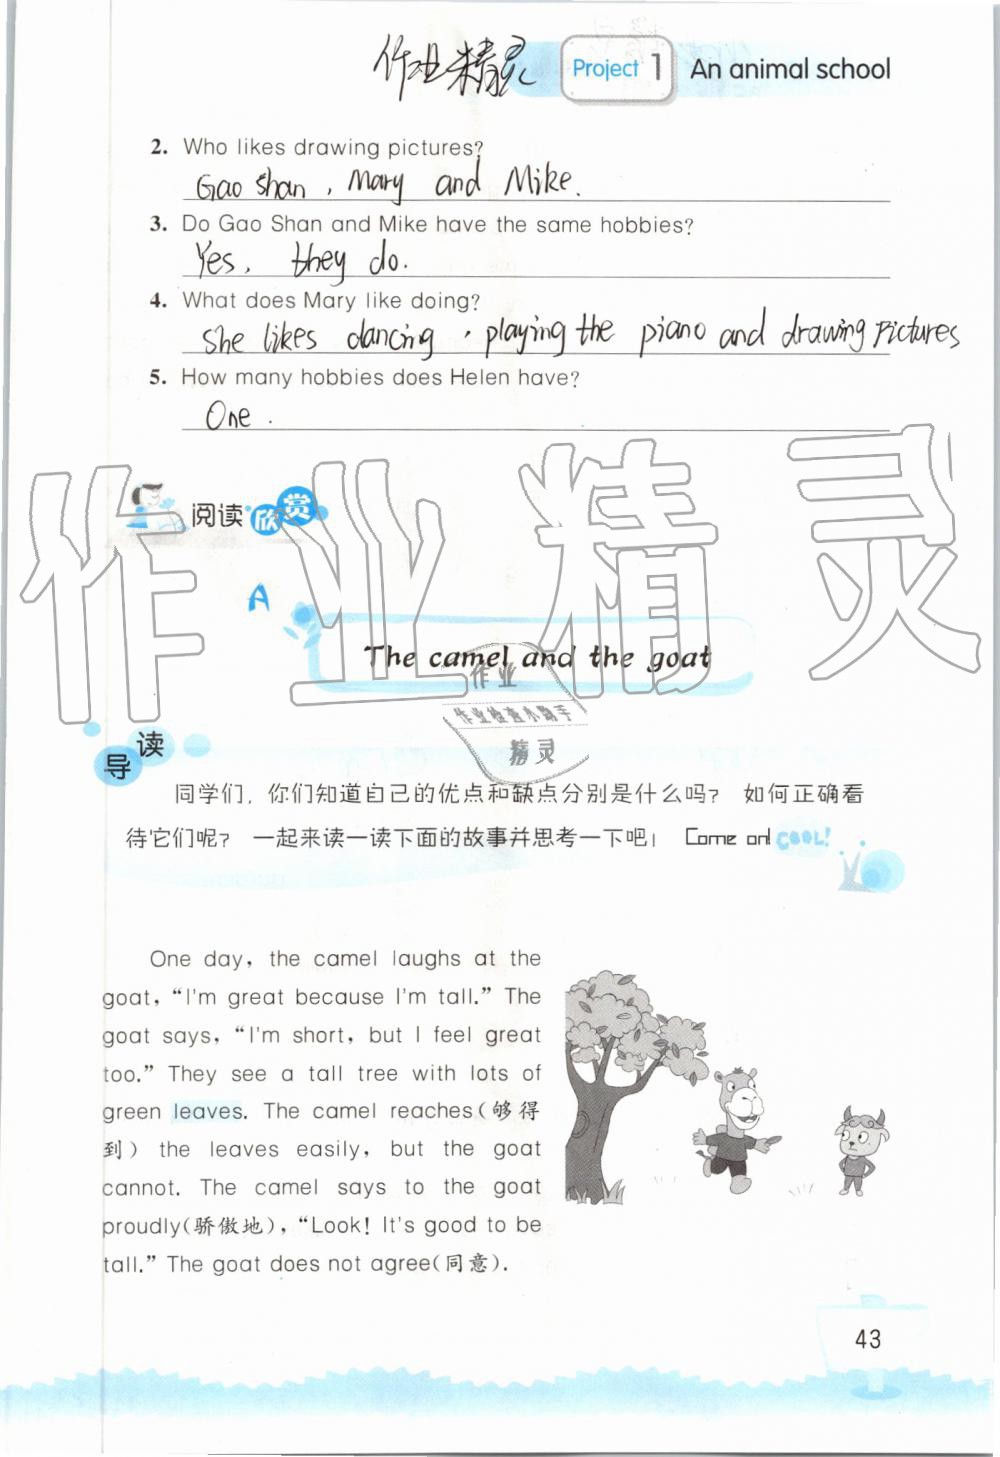 作业精灵
Project 1 An animal school
2. Who likes drawing pictures?
Gao Shan, Mary and Mike.
3. Do Gao Shan and Mike have the same hobbies?
Yes, they do.
4. What does Mary like doing?
She likes dancing, playing the piano and drawing pictures
5. How many hobbies does Helen have?
One.
阅读欣赏
作业精灵
A
The camel and the goat
作业
作业检查小助手
精灵
导读
同学们，你们知道自己的优点和缺点分别是什么吗？ 如何正确看
待它们呢？ 一起来读一读下面的故事并思考一下吧！ Come on! COOL!
One day, the camel laughs at the
goat, “I'm great because I'm tall.” The
goat says, “I'm short, but I feel great
too.” They see a tall tree with lots of
green leaves. The camel reaches(够得
到) the leaves easily, but the goat
cannot. The camel says to the goat
proudly(骄傲地), “Look! It's good to be
tall.” The goat does not agree(同意).
43